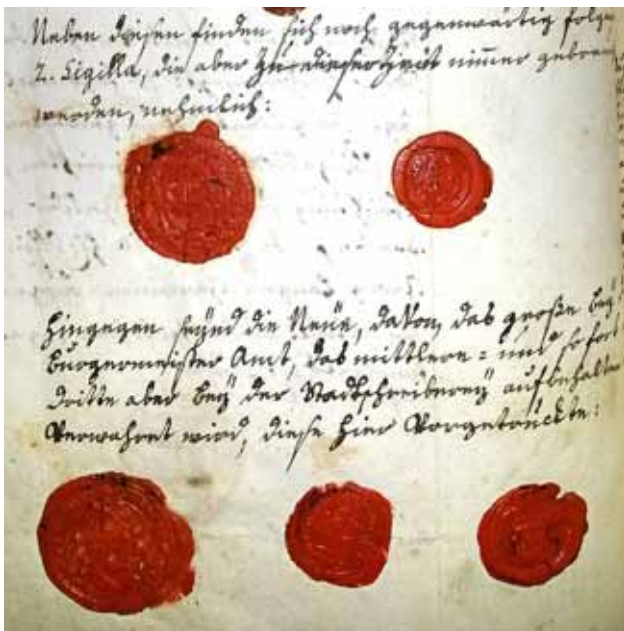 Neben diesen finden sich noch gegenwärtig folge
2. Sigilla, die aber zu dieser Zeit nimmer gebrau
werden, nehmlich:
Hingegen seynd die Neüe, davon, das große bey
Burgermeister Amt, das mittlere = und so fort
dritte aber bey der Stadtschreiberey aufbehalten
Verwahret wird, diese hier Vorgetruckte: